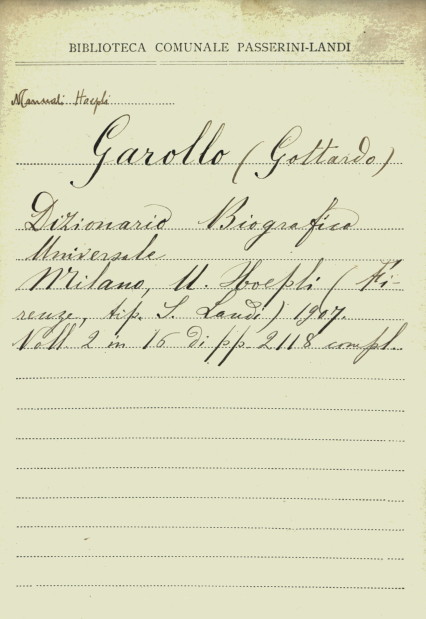 BIBLIOTECA COMUNALE PASSERINI-LANDI
Manuali Hoepli
Garollo (Gottardo)
Dizionario Biografico
Universale
Milano, U. Hoepli (Fi-
renze, tip. S. Landi) 1907.
Voll. 2 in 16 di pp. 2118 compl.